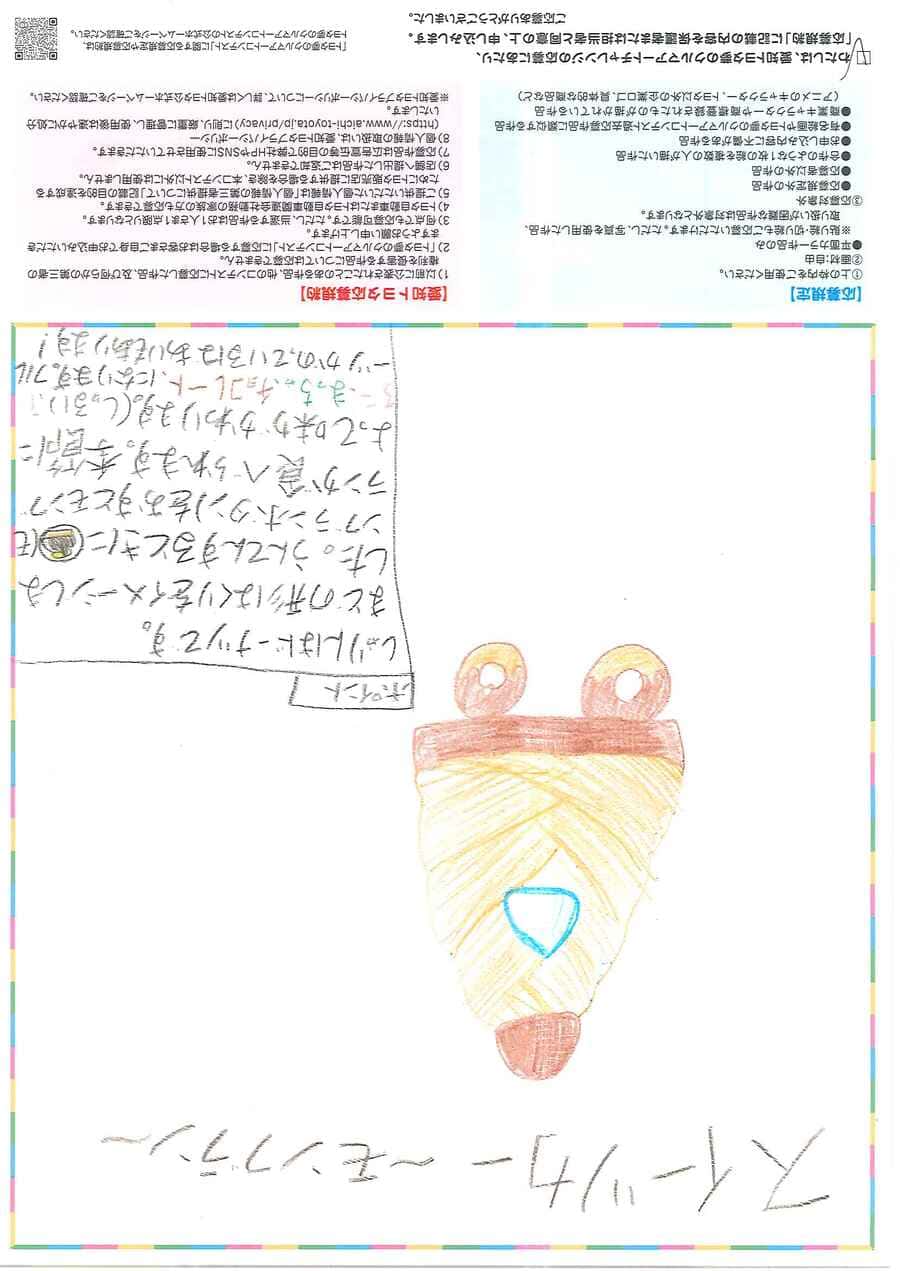 スイーツカー ～モンブラン～
ポイント
しゃりんはドーナツです。
まどの形はくりをイメージしま
した。うんてんするときに(モ
ンブランボタン)をおすとモンブ
ランが食べられます。季節に
よって味がかわります。(しゅるい)
まっちゃ、チョコレート、になります。フル
ーツがのっているばあいもあります!
【応募規定】
①上の枠内をご使用ください。
②画材:自由
●平面カラー作品のみ
※貼り絵・切り絵もご応募いただけます。ただし、写真を使用した作品、
取扱いが困難な作品は対象外となります。
③応募対象外
●応募規定外の作品
●応募者以外の作品
●合作のような1枚の絵を複数の人が描いた作品
●お申し込み内容に不備がある作品
●有名絵画やトヨタ夢のクルマアートコンテスト過去応募作品に類似する作品
●商業キャラクターや商標登録されたものが描かれている作品
(アニメのキャラクター、トヨタ以外の企業ロゴ、具体的な商品など)
【愛知トヨタ応募規約】
1)以前に公表されたことのある作品、他のコンテストに応募した作品、及び何らかの第三者の
権利を侵害する作品については応募できません。
2)「トヨタ夢のクルマアートコンテスト」に応募する場合はお客さまご自身でお申込みいただき
ますようお願い申し上げます。
3)何点でも応募可能です。ただし、当選する作品は お1人さま1点限りとなります。
4)トヨタ自動車またはトヨタ自動車関連会社勤務の家族の方も応募できます。
5)ご提供いただいた個人情報は「個人情報の第三者提供について」記載の目的を達成する
ためにトヨタ販売店に提供する場合を除き、本コンテスト以外には使用しません。
6)店舗へ提出した作品はご返却できません。
7)応募作品は広告宣伝等の目的で弊社HPやSNSに使用させていただきます。
8)個人情報の取扱いは、愛知トヨタプライバシーポリシー
(https://www.aichi-toyota.jp/privacy)に則り、厳重に管理し、使用後は速やかに処分
いたします。
※愛知トヨタプライバシーポリシーについて、詳しくは愛知トヨタ公式ホームページをご確認ください。
わたしは、愛知トヨタ夢のクルマアートチャレンジの応募にあたり、
「応募規約」に記載の内容を保護者または担当者と同意の上、申し込みします。
ご応募ありがとうございました。
「トヨタ夢のクルマアートコンテスト」に関する応募規定や応募規約は、
トヨタ夢のクルマアートコンテストの公式ホームページをご確認ください。